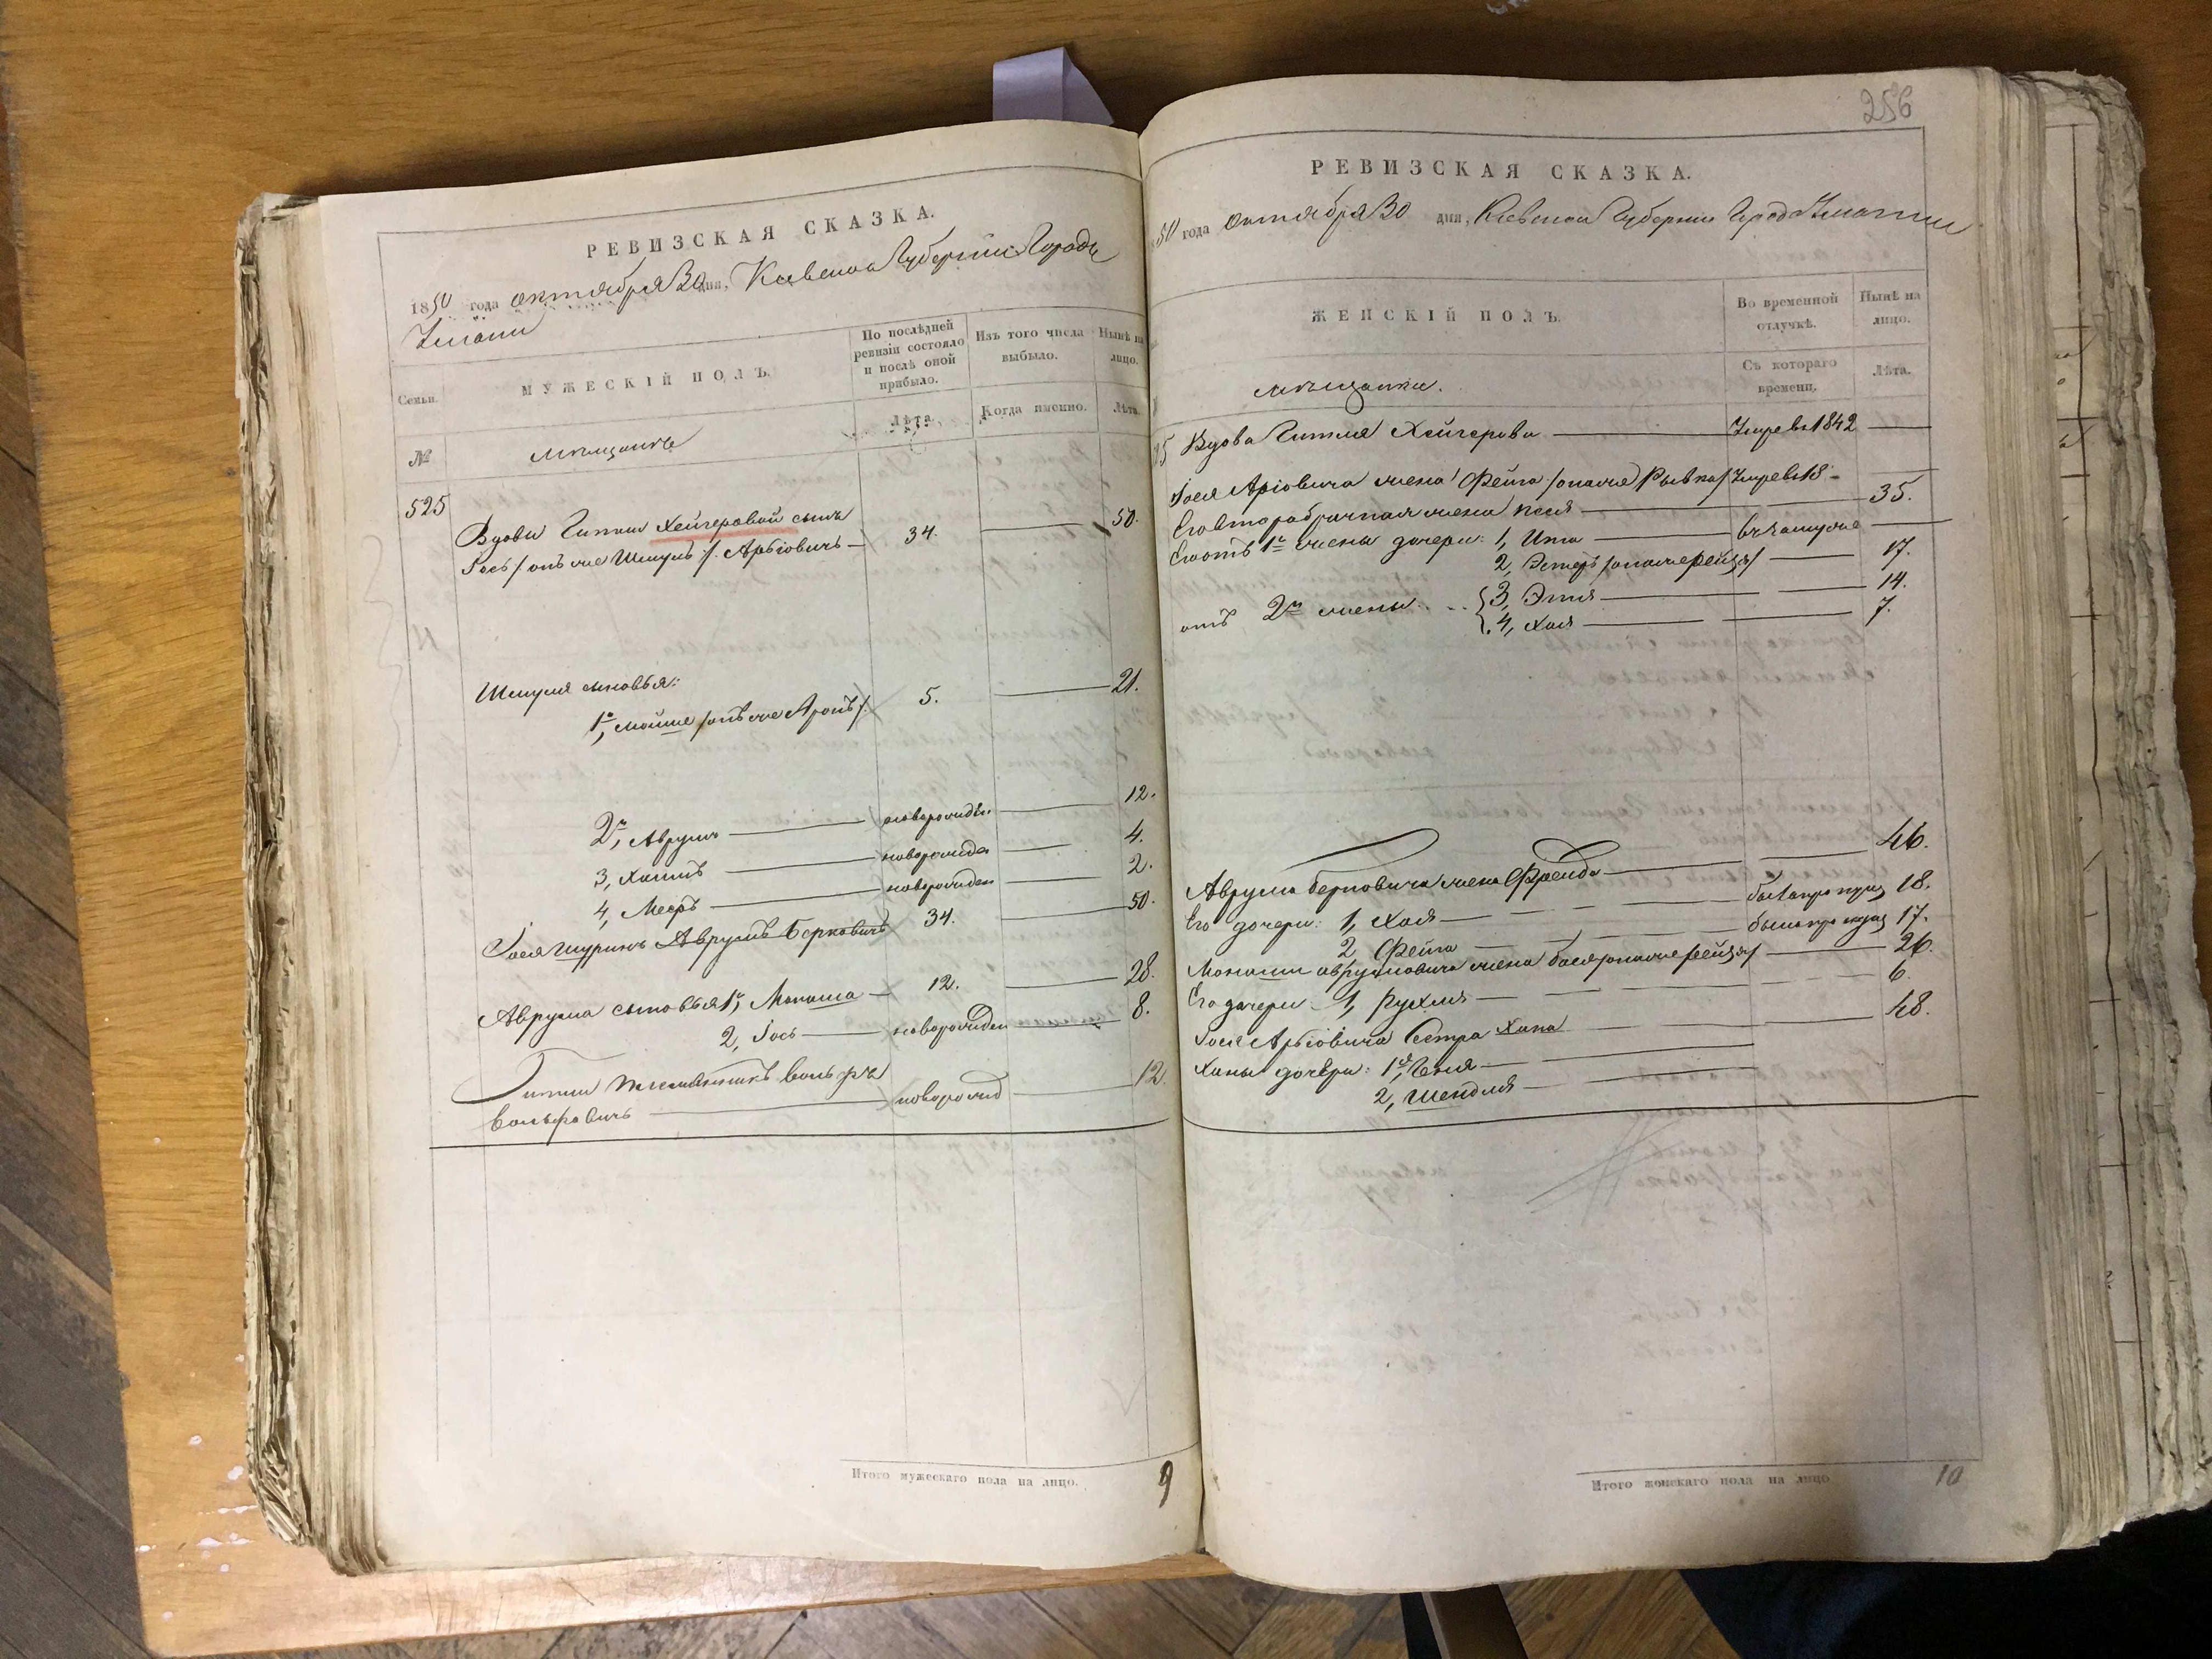 РЕВИЗСКАЯ СКАЗКА.
1850 года октября 30 дня, Киевской Губернии Города
Умани
Семьи.
МУЖЕСКІЙ ПОЛЪ.
По послѣдней ревизіи состояло и послѣ оной прибыло.
Изъ того числа выбыло.
Нынѣ на лицо.
№
мѣщанъ
Лѣта.
Когда именно.
Лѣта.
525
Вдовы Гитли Хейгеровой сынъ
Іось /онъ же Шмуль/. Арьіовичъ — 34. — 50.
Шмуля сыновья:
1й, Мойше /онъ же Аронъ/. 5. — 21.
2й, Аврумъ — новорожден. — 12.
3, Хаимъ — новорожден — 4.
4, Мееръ — новорожден — 2.
Іося Шуринъ Аврумъ Берковичъ 34. — 50.
Аврума сыновья 1й, Монаша — 12. — 28.
2, Іось — новорожден — 8.
Гитли племянникъ Вольфъ
Вольфовичъ — новорожд — 12.
Итого мужескаго пола на лицо. 9
256
РЕВИЗСКАЯ СКАЗКА.
50 года октября 30 дня, Киевской Губернии Город Умани
ЖЕНСКІЙ ПОЛЪ.
Во временной отлучкѣ.
Нынѣ на лицо.
Съ котораго времени.
Лѣта.
мѣщанки.
Вдова Гитля Хейгерова — Умре въ 1842 —
Іося Аріовича жена Фейга /она же Рывка/ Умре въ 18 -
Его второбрачная жена — 35.
Его отъ 1й жены дочери: 1, Ита — въ замуже —
2, Эстеръ /она же Рейзя/ — 17.
отъ 2й жены 3, Этля — 14.
4, Хая — 7.
Аврума Берковича жена Фрейда — 46.
Его дочери: 1, Хая — 18.
2, Фейга — 17.
Монаши Аврумовича жена Бася /она же Рейзя/ — 26.
Его дочери 1, Рухля — 6.
Іося Арьіовича Сестра Хана — 48.
Ханы дочери: 1я, Геня —
2, Шендля —
Итого женскаго пола на лицо 10